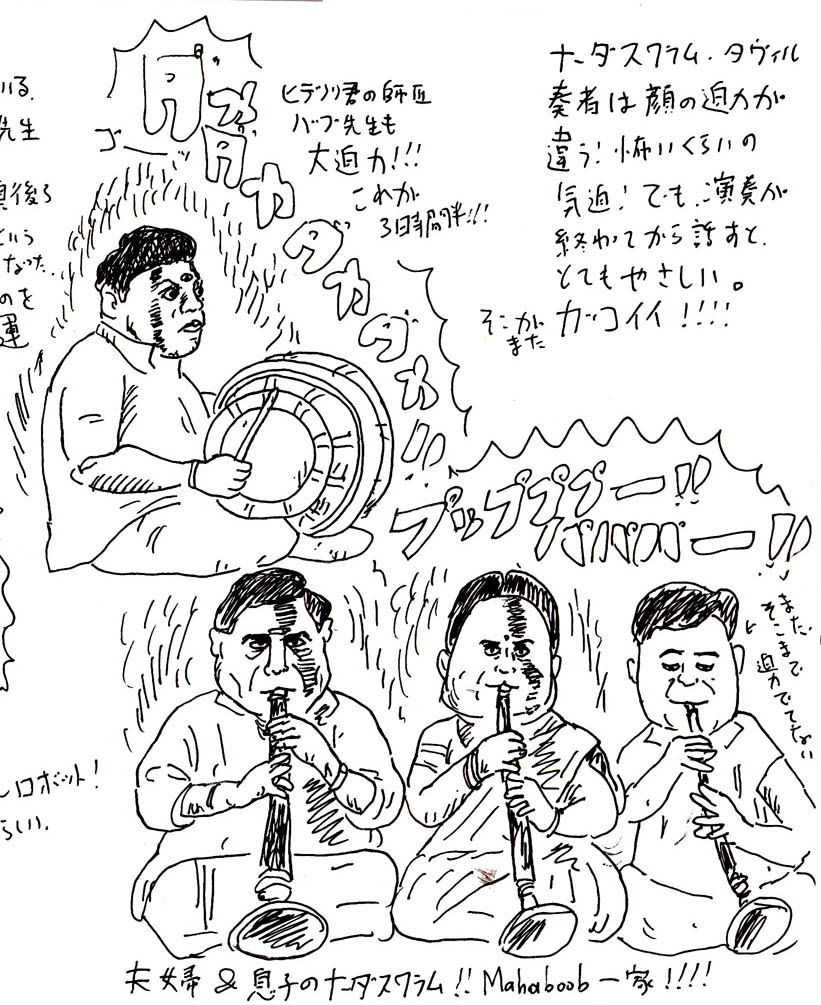 ナーダスワラム・タヴィル
奏者は顔の迫力が
違う！怖いくらいの
気迫！でも、演奏が
終わてから話すと、
とてもやさしい。
そこがまた
カッコイイ！！！！
ヒデノリ君の師匠
バブ先生も
大迫力！！！
これが
3時間半！！！
ゴーッ
ダカダカダカダカ！！
いる。
先生
真後ろ
という
なった。
のを
運
プップププー！！
パパパパー！！
まだ
そこまで
迫力でてない
ロボット！
らしい。
夫婦&息子のナーダスワラム！！Mahaboob一家！！！！